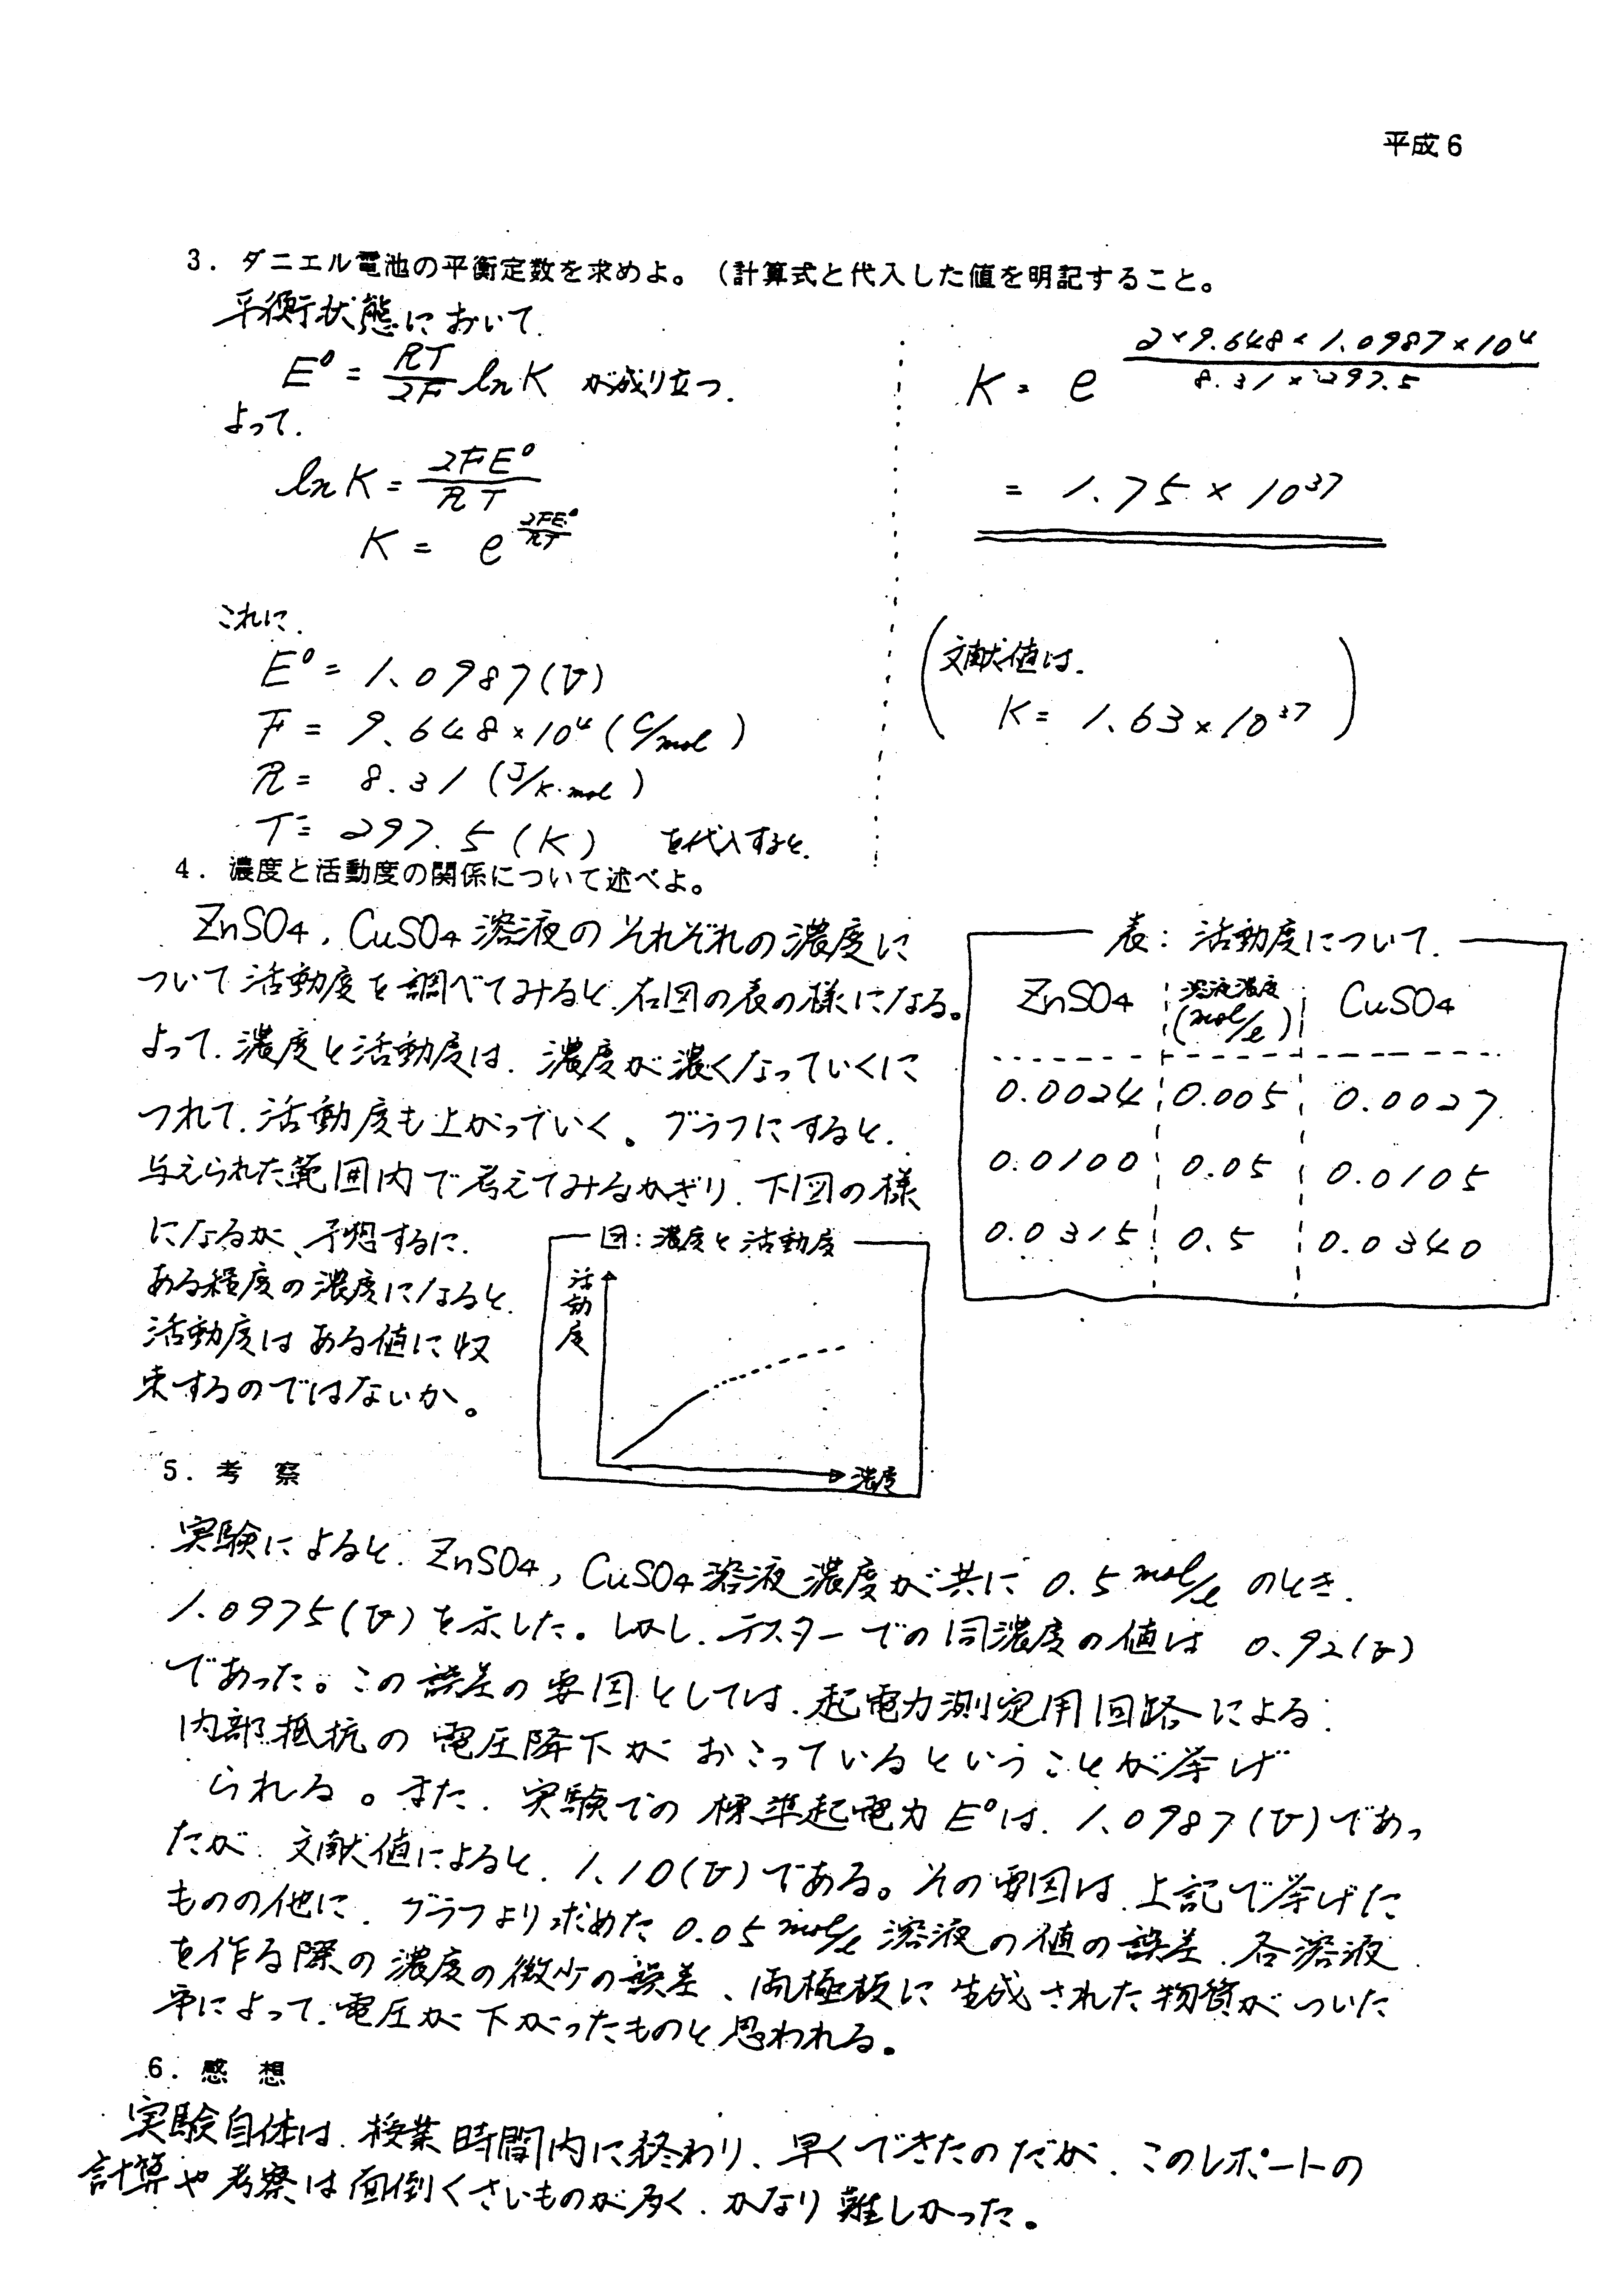 平成6
3. ダニエル電池の平衡定数を求めよ。(計算式と代入した値を明記すること。
平衡状態において.
E⁰ = RT/2F ln K が成り立つ.
よって.
ln K = 2FE⁰/RT
K = e^(2FE⁰/RT)
これに.
E⁰ = 1.0987(V)
F = 9.648×10⁴ (C/mol)
R = 8.31 (J/K·mol)
T = 297.5 (K) を代入すると.
K = e^(2×9.648×1.0987×10⁴/8.31×297.5)
= 1.75 × 10³⁷
(文献値は.
K = 1.63×10³⁷)
4. 濃度と活動度の関係について述べよ。
ZnSO₄, CuSO₄ 溶液のそれぞれの濃度に
ついて活動度を調べてみると、右図の表の様になる。
よって、濃度と活動度は、濃度が濃くなっていくに
つれて、活動度も上がっていく。グラフにすると、
与えられた範囲内で考えてみるかぎり、下図の様
になるが、予想するに、
ある程度の濃度になると、
活動度はある値に収
束するのではないか。
表: 活動度について.
ZnSO₄ 溶液濃度 (mol/ℓ) CuSO₄
0.0024 0.005 0.0027
0.0100 0.05 0.0105
0.0315 0.5 0.0340
図: 濃度と活動度
活動度
濃度
5. 考 察
実験によると、ZnSO₄, CuSO₄溶液濃度が共に 0.5 mol/ℓ のとき、
1.0975(V)を示した。しかし、テスターでの同濃度の値は 0.92(V)
であった。この誤差の要因としては、起電力測定用回路による
内部抵抗の電圧降下がおこっているということが挙げ
られる。また、実験での標準起電力E⁰は、1.0987(V)であっ
たが、文献値によると、1.10(V)である。その要因は、上記で挙げた
ものの他に、グラフより求めた 0.05 mol/ℓ 溶液の値の誤差、各溶液
を作る際の濃度の微少の誤差、両極板に生成された物質がついた
事によって、電圧が下がったものと思われる。
6. 感 想
実験自体は、授業時間内に終わり、早くできたのだが、このレポートの
計算や考察は面倒くさいものが多く、かなり難しかった。